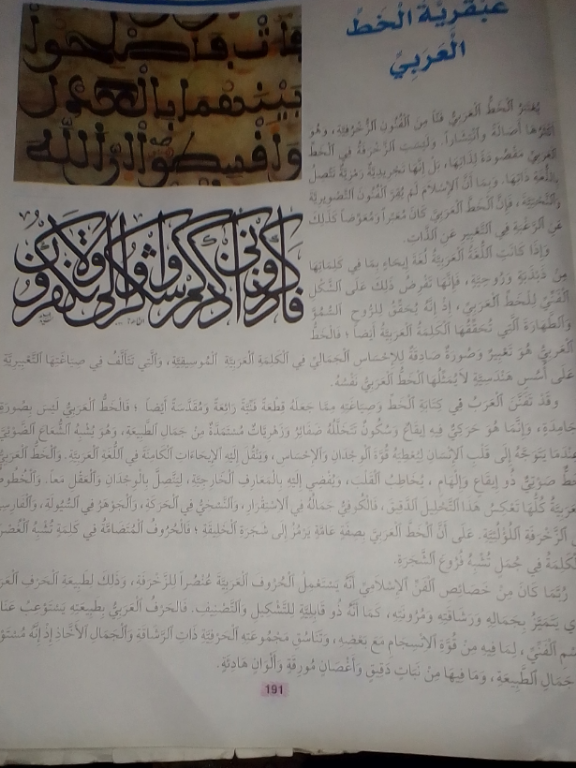 عَبْقَرِيَّةُ الْخَطِّ
الْعَرَبِيِّ
فَاءَتْ فَأَصْلِحُوا
بَيْنَهُمَا بِالْعَدْلِ
وَأَقْسِطُوا إِنَّ اللَّهَ
فَاذْكُرُونِي أَذْكُرْكُمْ وَاشْكُرُوا لِي وَلَا تَكْفُرُونِ
يُعْتَبَرُ الْخَطُّ الْعَرَبِيُّ فَنًّا مِنَ الْفُنُونِ الزُّخْرُفِيَّةِ، وَهُوَ
أَكْثَرُهَا أَصَالَةً وَانْتِشَاراً. وَلَيْسَتِ الزَّخْرَفَةُ فِي الْخَطِّ
الْعَرَبِيِّ مَقْصُودَةً لِذَاتِهَا، بَلْ إِنَّهَا تَجْرِيدِيَّةٌ رَمْزِيَّةٌ تَتَّصِلُ
بِاللُّغَةِ ذَاتِهَا. وَبِمَا أَنَّ الْإِسْلَامَ لَمْ يُقِرَّ الْفُنُونَ التَّصْوِيرِيَّةَ
وَالنَّحْتِيَّةَ، فَإِنَّ الْخَطَّ الْعَرَبِيَّ كَانَ مُعَبِّراً وَمُعَوِّضاً كَذَلِكَ
عَنِ الرَّغْبَةِ فِي التَّعْبِيرِ عَنِ الذَّاتِ.
وَإِذَا كَانَتِ اللُّغَةُ الْعَرَبِيَّةُ لُغَةَ إِيحَاءٍ بِمَا فِي كَلِمَاتِهَا
مِنْ ذَبْذَبَةٍ وَرُوحِيَّةٍ، فَإِنَّهَا تَفْرِضُ ذَلِكَ عَلَى الشَّكْلِ
الْفَنِّيِّ لِلْخَطِّ الْعَرَبِيِّ، إِذْ إِنَّهُ يُحَقِّقُ لِلرُّوحِ السُّمُوَّ
وَالطَّهَارَةَ الَّتِي تُحَقِّقُهَا الْكَلِمَةُ الْعَرَبِيَّةُ أَيْضاً ؛ فَالْخَطُّ
الْعَرَبِيُّ هُوَ تَعْبِيرٌ وَصُورَةٌ صَادِقَةٌ لِلْإِحْسَاسِ الْجَمَالِيِّ فِي الْكَلِمَةِ الْعَرَبِيَّةِ الْمُوسِيقِيَّةِ، وَالَّتِي تَتَأَلَّفُ فِي صِيَاغَتِهَا التَّعْبِيرِيَّةِ
عَلَى أُسُسٍ هَنْدَسِيَّةٍ لَا يُمَثِّلُهَا الْخَطُّ الْعَرَبِيُّ نَفْسُهُ.
وَقَدْ تَفَنَّنَ الْعَرَبُ فِي كِتَابَةِ الْخَطِّ وَصِيَاغَتِهِ مِمَّا جَعَلَهُ قِطْعَةً فَنِّيَّةً رَائِعَةً وَمُقَدَّسَةً أَيْضاً ؛ فَالْخَطُّ الْعَرَبِيُّ لَيْسَ بِصُورَةٍ
جَامِدَةٍ، وَإِنَّمَا هُوَ حَرَكِيٌّ فِيهِ إِيقَاعٌ وَسُكُونٌ تَتَخَلَّلُهُ ضَفَائِرُ وَزَهْرِيَّاتٌ مُسْتَمَدَّةٌ مِنْ جَمَالِ الطَّبِيعَةِ، وَهُوَ يُشْبِهُ الشُّعَاعَ الضَّوْئِيَّ
عِنْدَمَا يَتَوَجَّهُ إِلَى قَلْبِ الْإِنْسَانِ لِيُعْطِيَهُ قُوَّةَ الْوِجْدَانِ وَالْإِحْسَاسِ، وَيَنْقُلَ إِلَيْهِ الْإِيحَاءَاتِ الْكَامِنَةَ فِي اللُّغَةِ الْعَرَبِيَّةِ. وَالْخَطُّ الْعَرَبِيُّ
خَطٌّ ذُو إِيقَاعٍ وَإِلْهَامٍ، يُخَاطِبُ الْقَلْبَ، وَيُفْضِي إِلَيْهِ بِالْمَعَارِفِ الْخَارِجِيَّةِ، لِيَتَّصِلَ بِالْوِجْدَانِ وَالْعَقْلِ مَعاً. وَالْخُطُوطُ
الْعَرَبِيَّةُ كُلُّهَا تَعْكِسُ هَذَا التَّحْلِيلَ الدَّقِيقَ، فَالْكُوفِيُّ جَمَالُهُ فِي الِاسْتِقْرَارِ، وَالنَّسْخِيُّ فِي الْحَرَكَةِ، وَالْجَوْهَرُ فِي السُّيُولَةِ، وَالْفَارِسِيُّ
الزَّخْرَفَةِ اللُّؤْلُئِيَّةِ. عَلَى أَنَّ الْخَطَّ الْعَرَبِيَّ بِصِفَةٍ عَامَّةٍ يَرْمُزُ إِلَى شَجَرَةِ الْخَلِيقَةِ ؛ فَالْحُرُوفُ الْمُتَضَامَّةُ فِي كَلِمَةٍ تُشْبِهُ الْغُصْنَ
الْكَلِمَةُ فِي جُمَلٍ تُشْبِهُ فُرُوعَ الشَّجَرَةِ.
رُبَّمَا كَانَ مِنْ خَصَائِصِ الْفَنِّ الْإِسْلَامِيِّ أَنَّهُ يَسْتَعْمِلُ الْحُرُوفَ الْعَرَبِيَّةَ عُنْصُراً لِلزَّخْرَفَةِ، وَذَلِكَ لِطَبِيعَةِ الْحَرْفِ
يَتَمَيَّزُ بِجَمَالِهِ وَرَشَاقَتِهِ وَمُرُونَتِهِ، كَمَا أَنَّهُ ذُو قَابِلِيَّةٍ لِلتَّشْكِيلِ وَالتَّصْنِيفِ. فَالْحَرْفُ الْعَرَبِيُّ بِطَبِيعَتِهِ يَسْتَوْعِبُ
الْفَنِّيِّ، لِمَا فِيهِ مِنْ قُوَّةِ الِانْسِجَامِ مَعَ بَعْضِهِ، وَتَنَاسُقِ مَجْمُوعَتِهِ الْحَرْفِيَّةِ ذَاتِ الرَّشَاقَةِ وَالْجَمَالِ الْأَخَّاذِ إِذْ إِنَّهُ
جَمَالِ الطَّبِيعَةِ، وَمَا فِيهَا مِنْ نَبَاتٍ دَقِيقٍ وَأَغْصَانٍ مُورِقَةٍ وَأَلْوَانٍ هَادِئَةٍ.
191